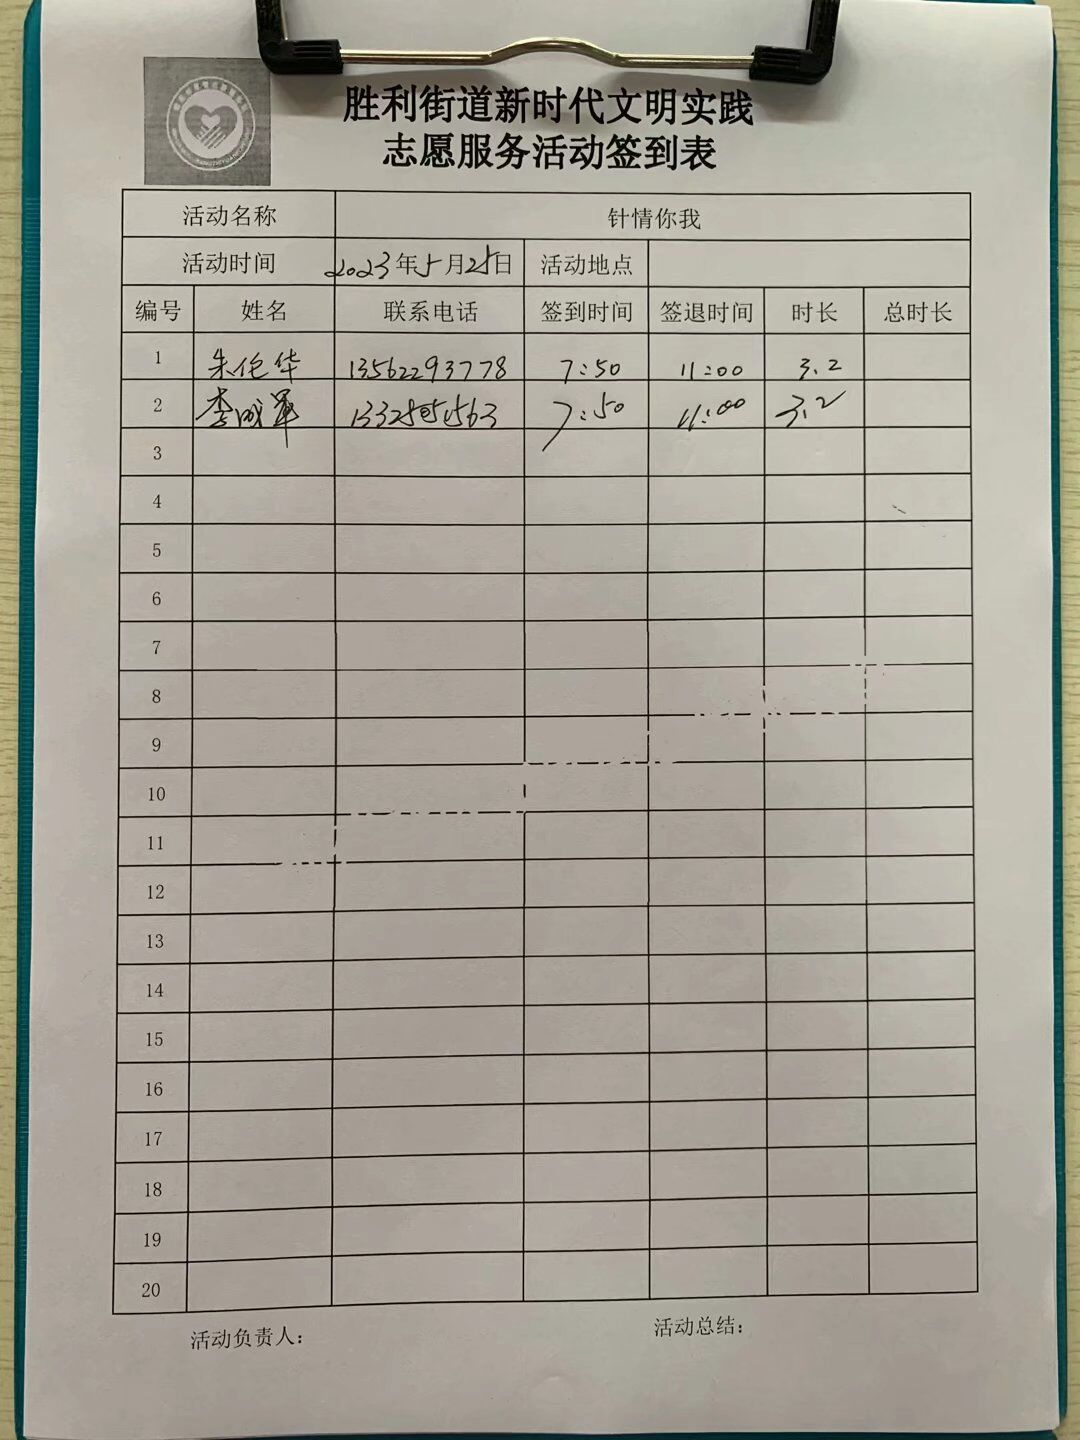 胜利街道新时代文明实践
志愿服务活动签到表
活动名称 针情你我
活动时间 2023年5月25日 活动地点
编号 姓名 联系电话 签到时间 签退时间 时长 总时长
1 朱伦华 13562293778 7:50 11:00 3.2
2 李成军 7:50 11:00 3.2
3
4
5
6
7
8
9
10
11
12
13
14
15
16
17
18
19
20
活动负责人： 活动总结：